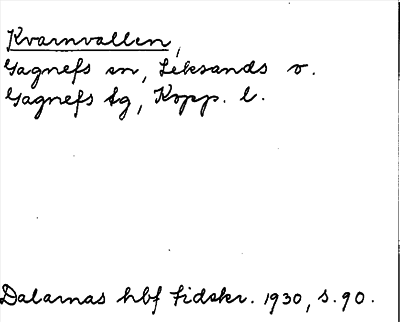 Kvarnvallen,
Gagnefs sn, Leksands o.
Gagnefs tg, Kopp. l.
Dalarnas hbf tidskr. 1930, s. 90.